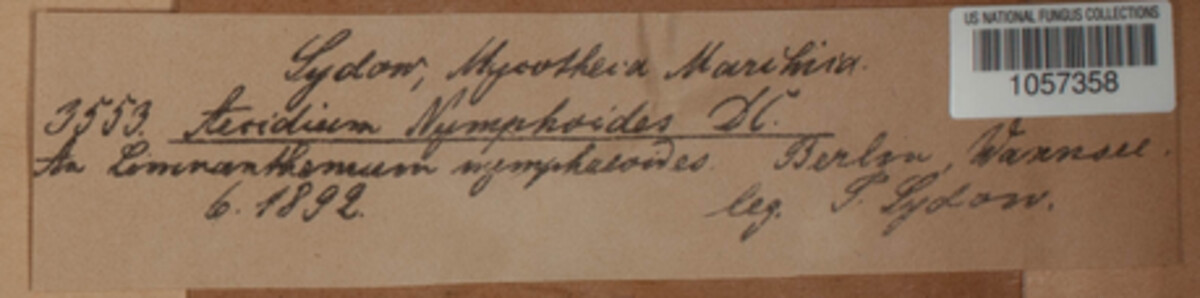 US NATIONAL FUNGUS COLLECTIONS
1057358
Sydow, Mycotheca Marchica.
3553. Aecidium Nymphoides DC.
An Limnanthemum nymphaeoides. Berlin, Wannsee.
6. 1892. leg. P. Sydow.